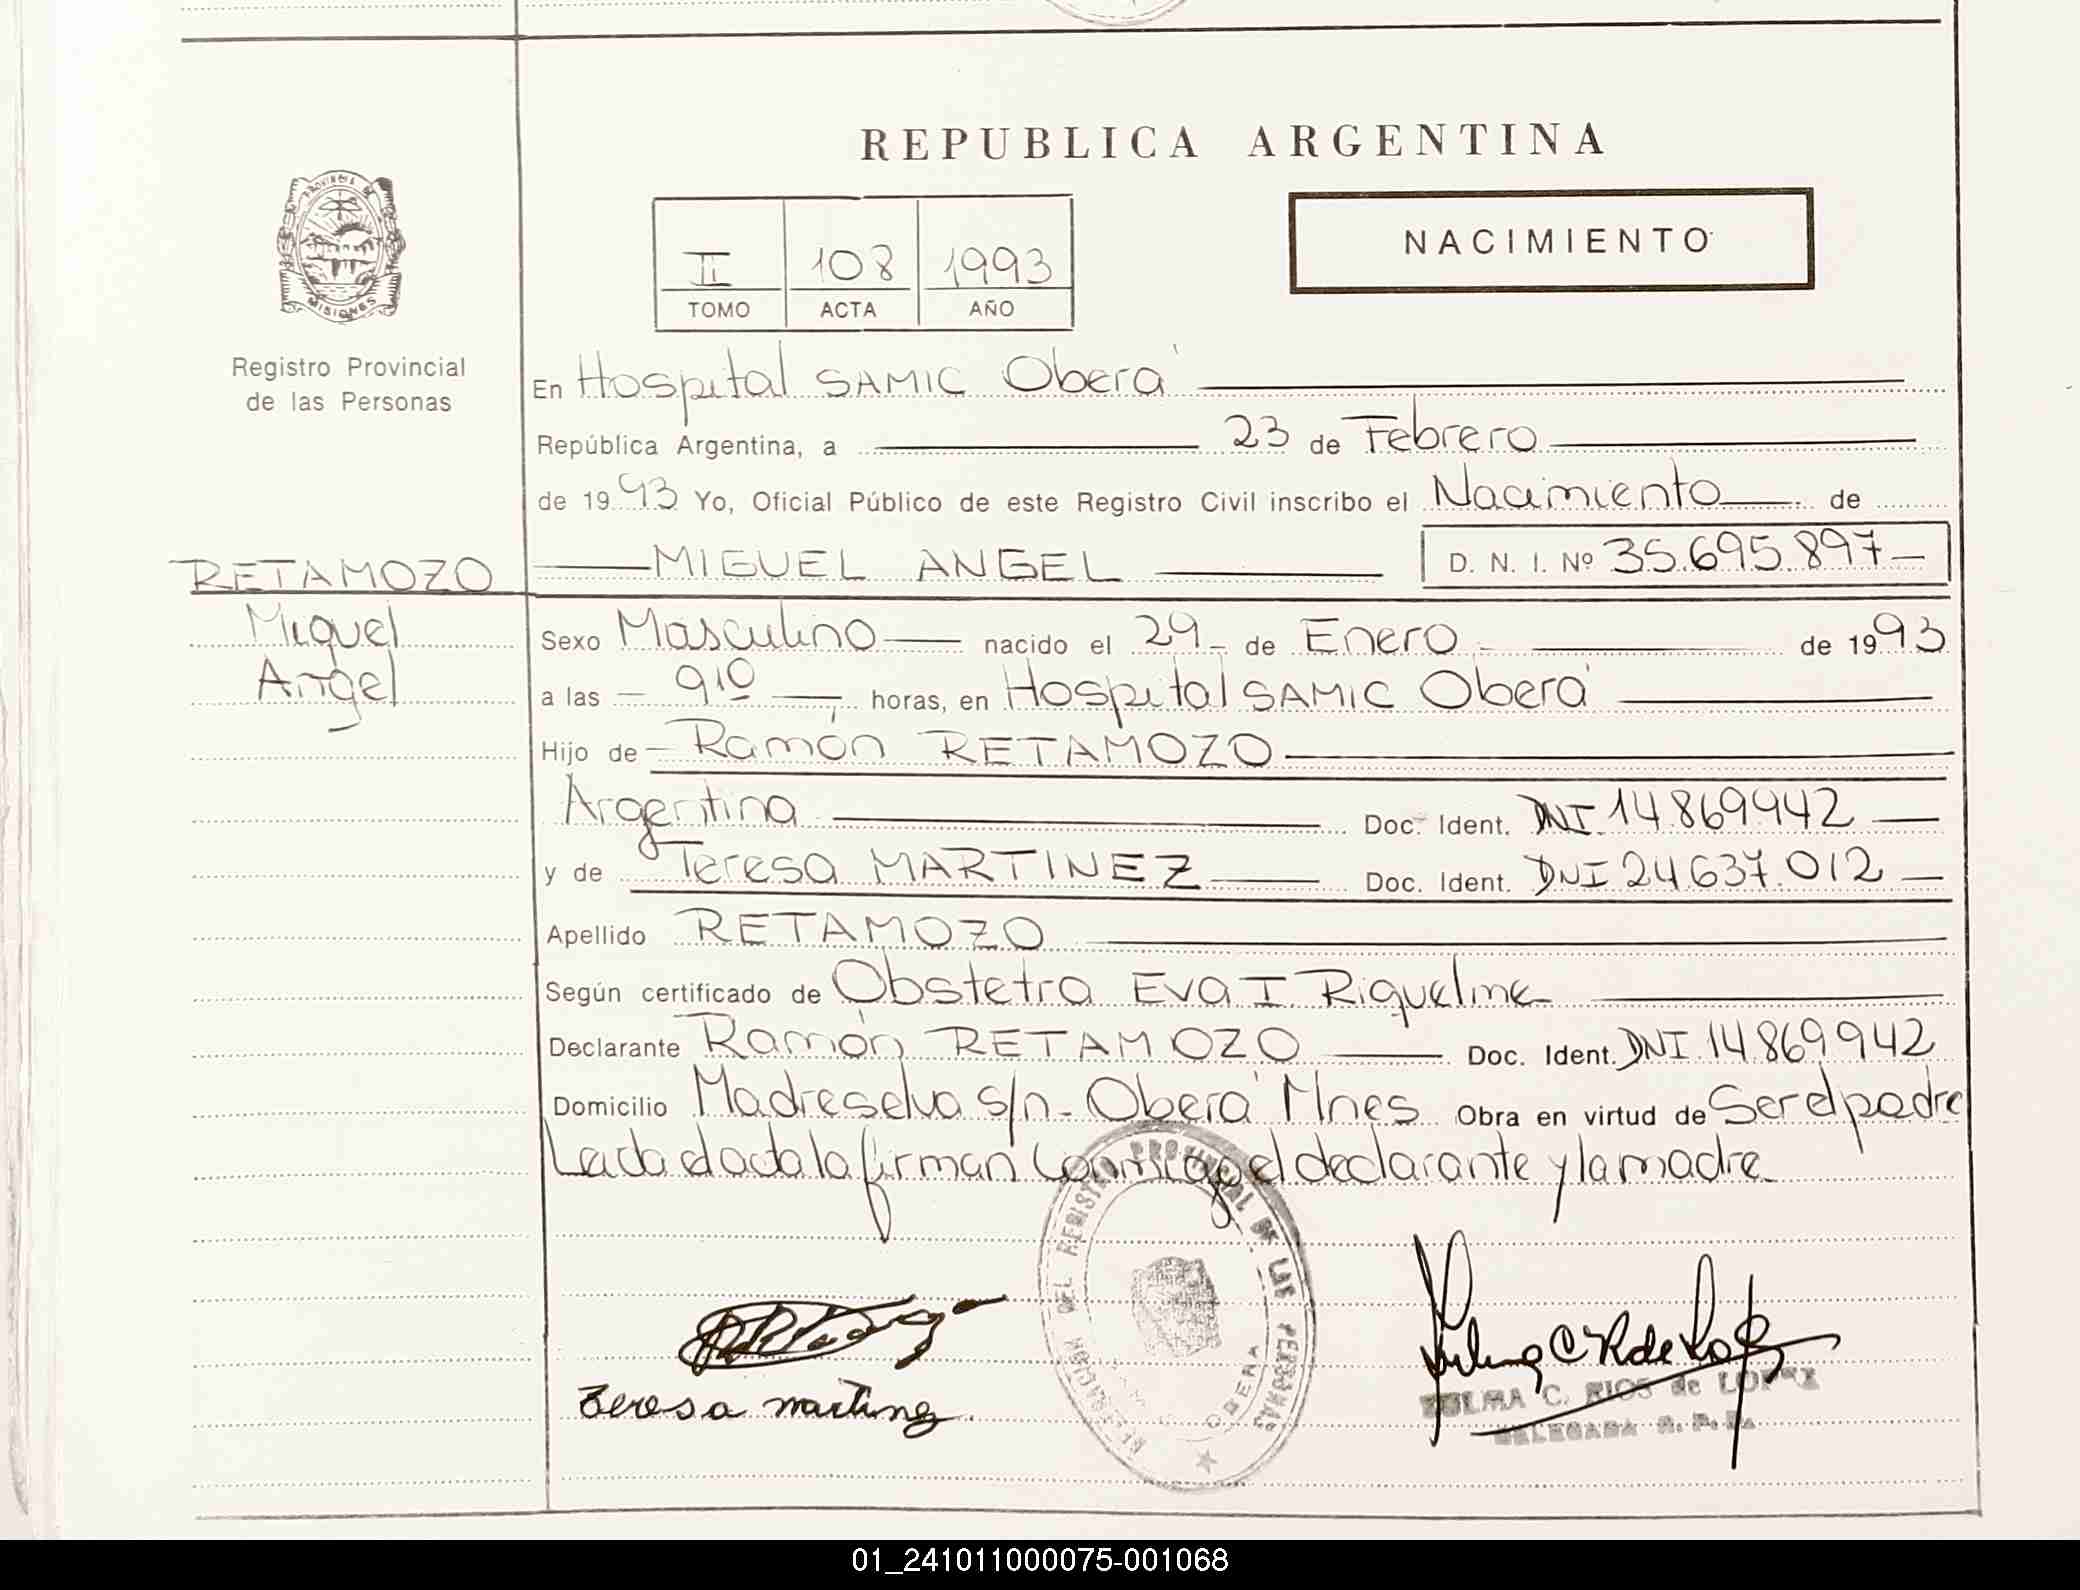 REPUBLICA ARGENTINA
PROVINCIA DE MISIONES
Registro Provincial
de las Personas
II 108 1993
TOMO ACTA AÑO
NACIMIENTO
En Hospital SAMIC Oberá
República Argentina, a 23 de Febrero
de 1993 Yo, Oficial Público de este Registro Civil inscribo el Nacimiento de
RETAMOZO MIGUEL ANGEL D. N. I. Nº 35.695.897
Miguel
Angel
Sexo Masculino nacido el 29 de Enero de 1993
a las 9¹⁰ horas, en Hospital SAMIC Oberá
Hijo de Ramón RETAMOZO
Argentina Doc. Ident. DNI 14.869942
y de Teresa MARTINEZ Doc. Ident. DNI 24.637.012
Apellido RETAMOZO
Según certificado de Obstetra Eva I Riquelme
Declarante Ramón RETAMOZO Doc. Ident. DNI 14.869942
Domicilio Madreselva s/n - Oberá Mnes Obra en virtud de Ser el padre
Leida el acta la firman conmigo el declarante y la madre
DEL REGISTRO PROVINCIAL DE LAS PERSONAS
OBERA
Teresa martinez
ZULMA C. RIOS de LOPEZ
DELEGADA R. P. P.
01_241011000075-001068